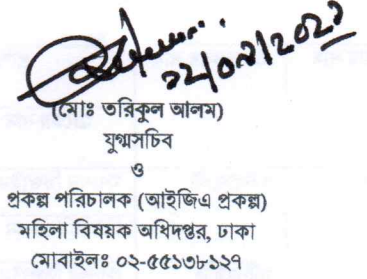 ২২/০৯/২০২১
(মোঃ তরিকুল আলম)
যুগ্মসচিব
ও
প্রকল্প পরিচালক (আইজিএ প্রকল্প)
মহিলা বিষয়ক অধিদপ্তর, ঢাকা
মোবাইলঃ ০২-৫৫১৩৮১২৭